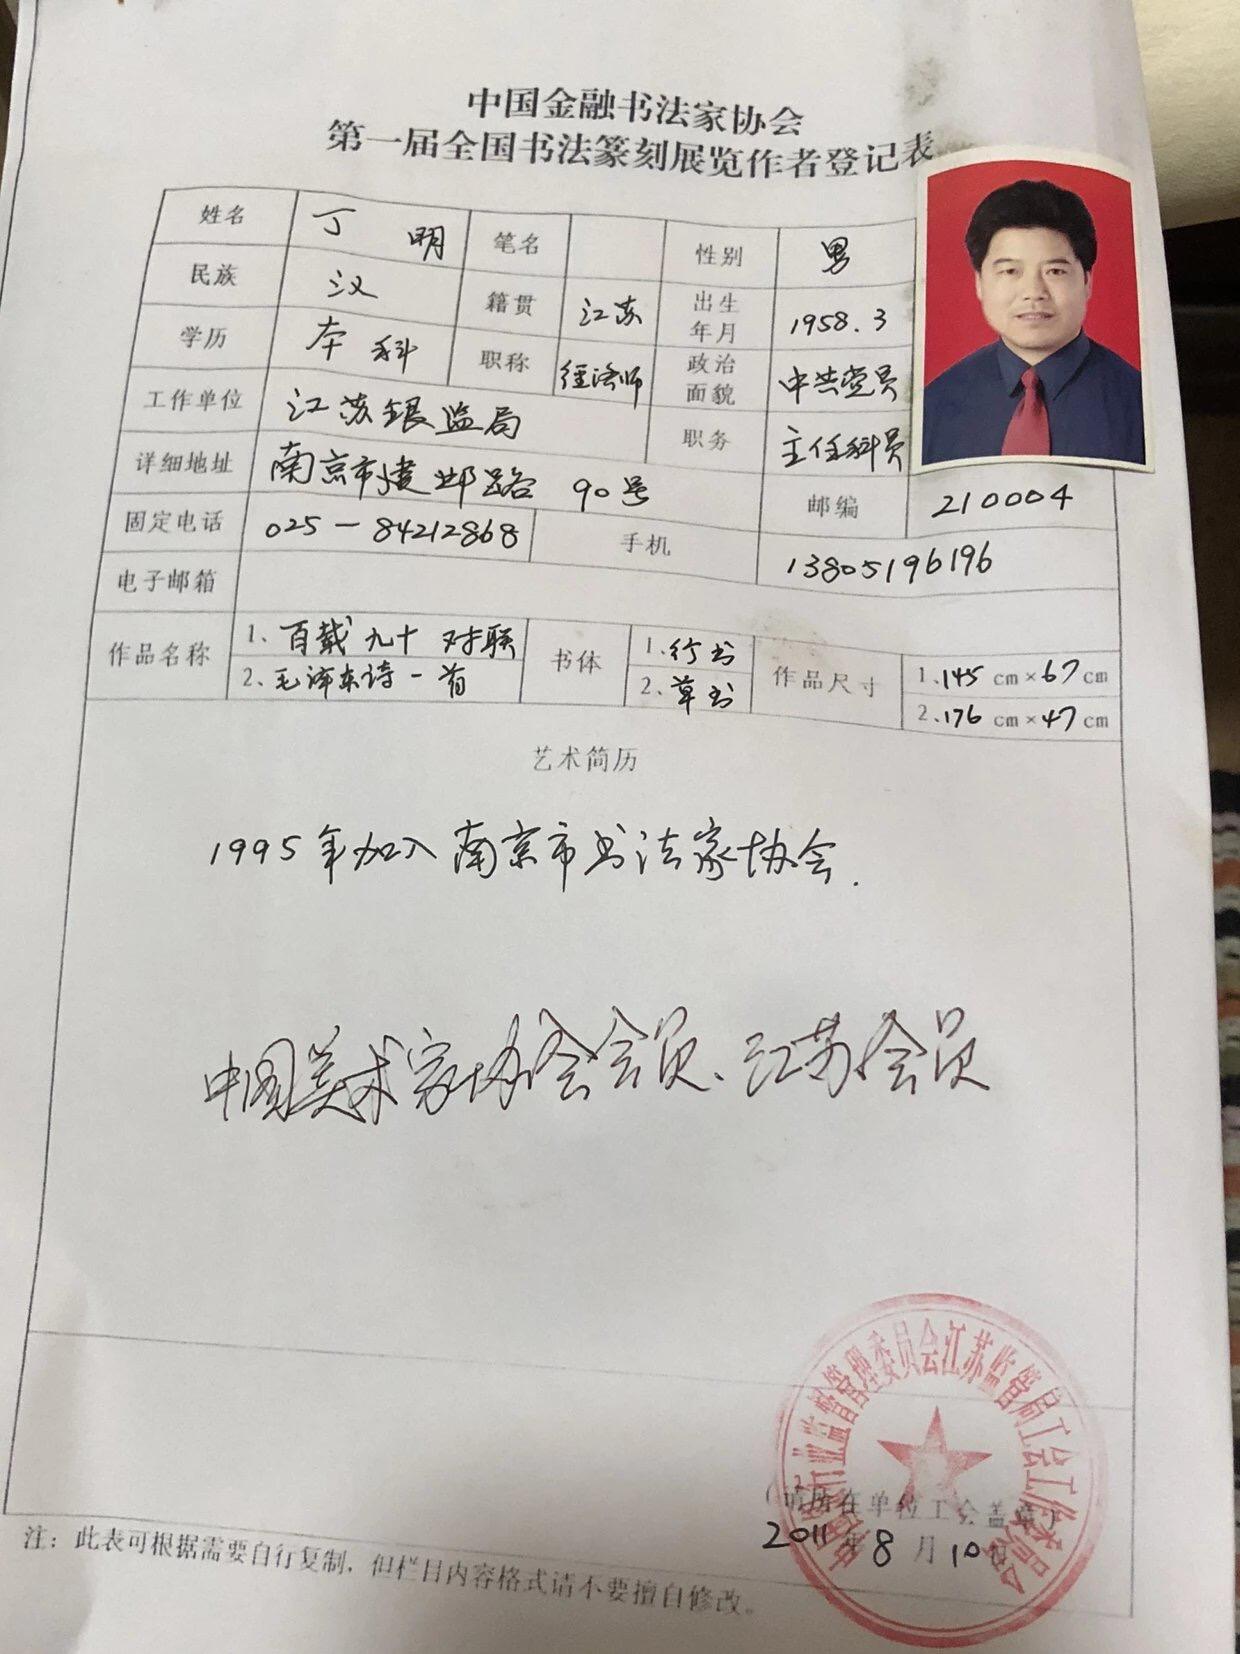 中国金融书法家协会
第一届全国书法篆刻展览作者登记表
姓名 丁 明 笔名 性别 男
民族 汉 籍贯 江苏 出生年月 1958.3
学历 本科 职称 经济师 政治面貌 中共党员
工作单位 江苏银监局 职务 主任科员
详细地址 南京市建邺路 90号 邮编 210004
固定电话 025-84212868 手机 13805196196
电子邮箱
作品名称 1、百载九十 对联 书体 1.行书 作品尺寸 1.145 cm×67cm
2、毛泽东诗一首 2、草书 2.176 cm×47cm
艺术简历
1995年加入南京市书法家协会.
中国美术家协会会员、江苏会员
业监督管理委员会江苏监管局工会工作委员会
(请所在单位工会盖章)
2011年8月10日
注：此表可根据需要自行复制，但栏目内容格式请不要擅自修改。